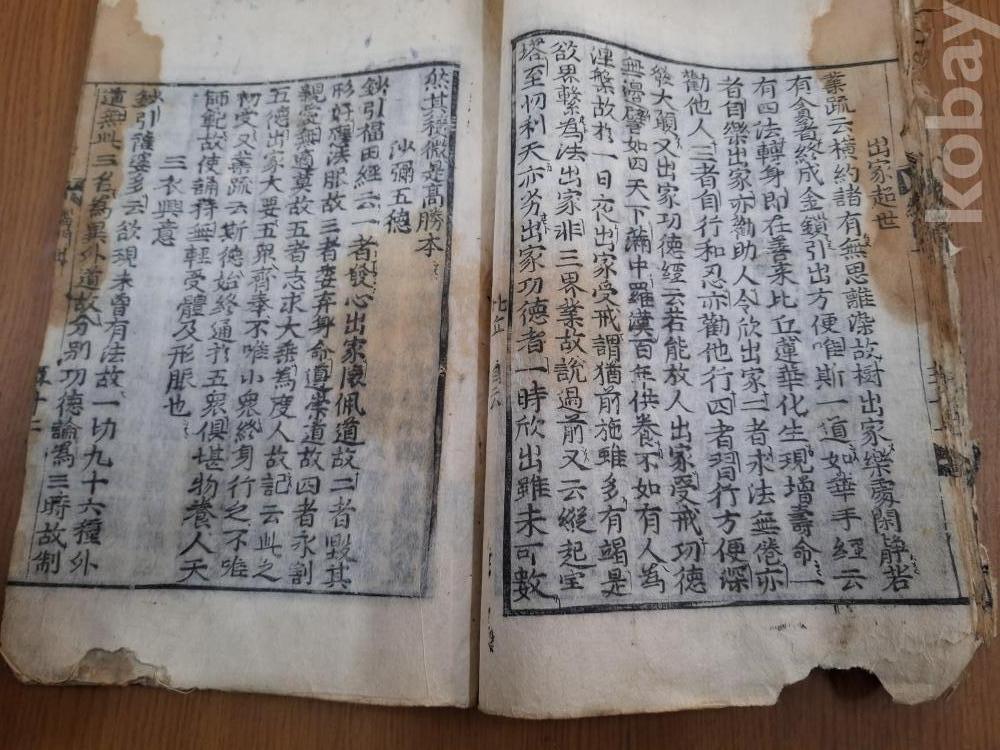 出家起世
業疏云横約諸有無思離染故樹出家樂處閑靜若
有貪者終成金鎖引出方便唯斯一道如華手經云
有四法轉身即在善來比丘蓮華化生現增壽命一
者自樂出家亦勸助人令欣出家二者求法無倦亦
勸他人三者自行和忍亦勸他行四者習行方便深
發大願又出家功德經云若能放人出家受戒功德
無邊譬如四天下滿中羅漢百年供養不如有人為
涅槃故於一日夜出家受戒謂猶前施雖多有竭是
欲界繫為法出家非三界業故說過前又云縱起宝
塔至忉利天亦劣出家功德者一時欣出雖未可數
然其秉微是高勝本
沙彌五德
鈔引福田經云一者發心出家懷佩道故二者毀其
形好應法服故三者委弃身命遵崇道故四者永割
親愛無適莫故五者志求大乘為度人故記云此之
五德出家大要五眾齊奉不唯小眾終身行之不唯
初受又業疏云斯德始終通於五眾俱堪物養人天
師範故使誦持無輕受體及形服也
三衣興意
鈔引薩婆多云欲現未曾有法故一切九十六種外
道無此三名為異外道故分別功德論為三時故制
kobay